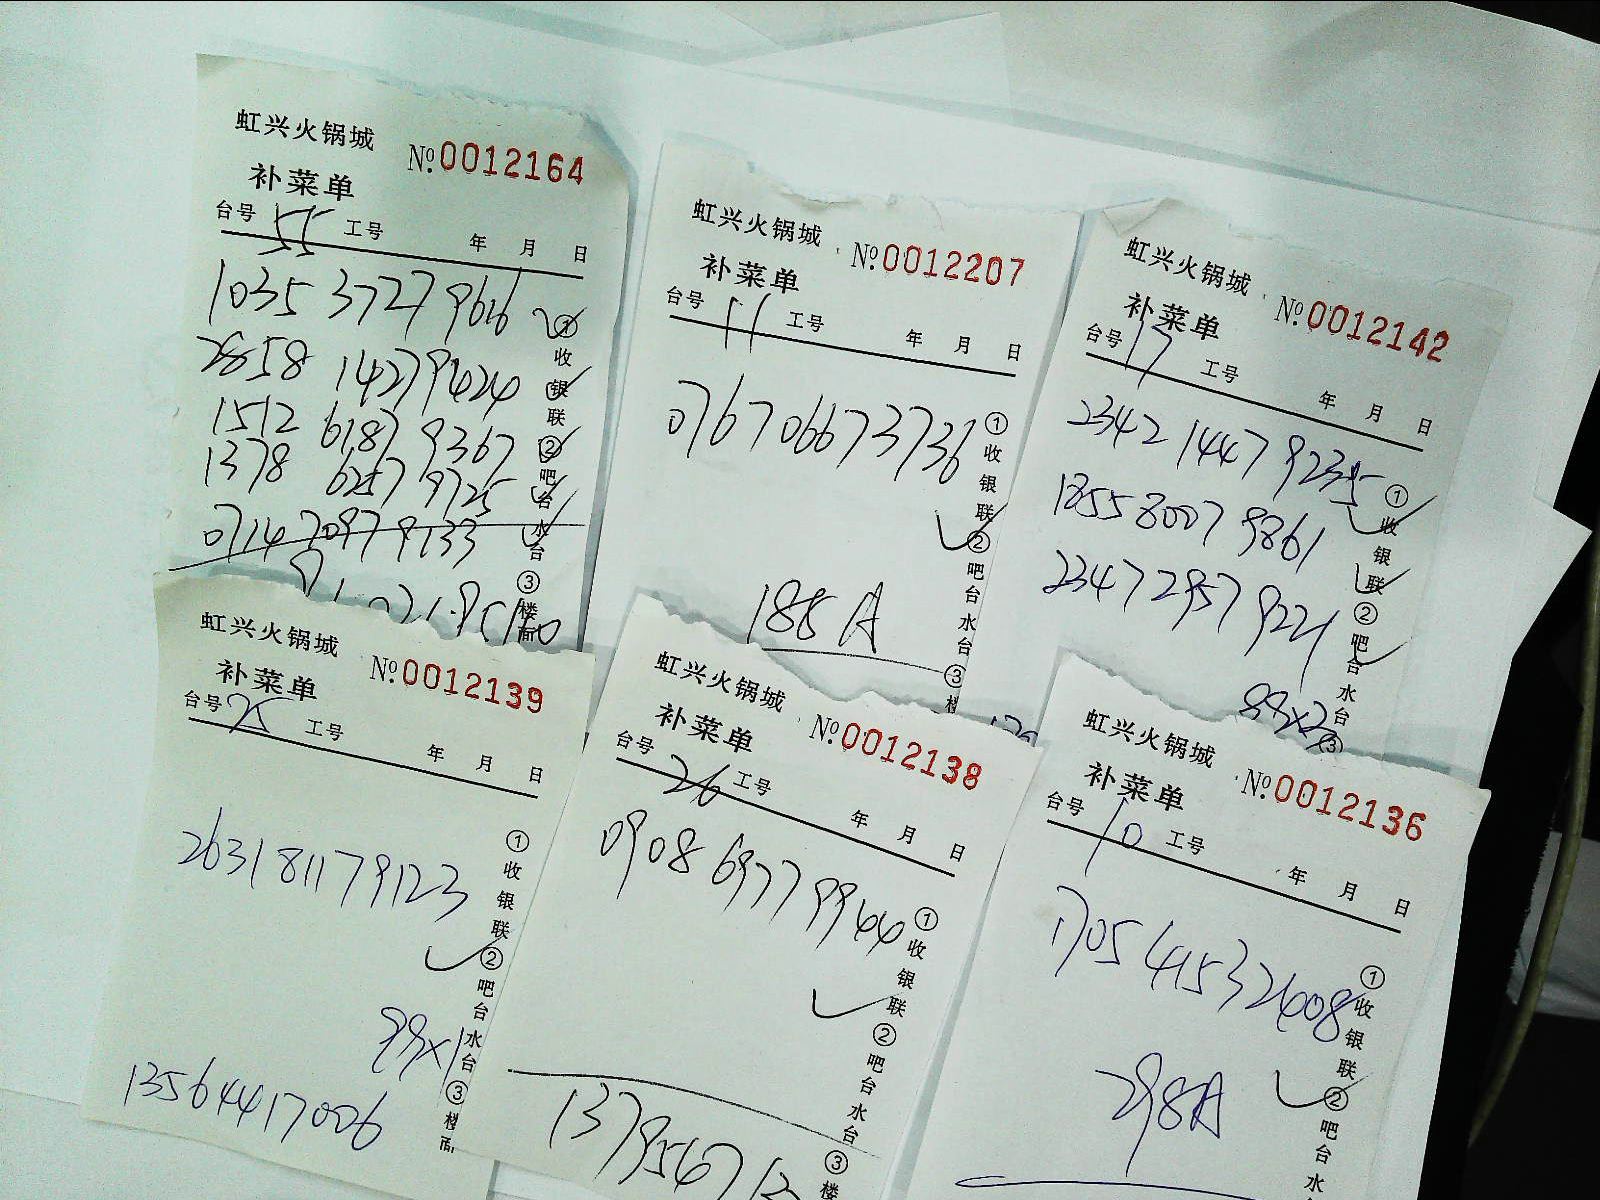 虹兴火锅城 №0012164
补菜单
台号 55 工号 年 月 日
1035 3727 9616
2858 1427 9424
1512 6187 9367
1378 6257 9725
0714 7097 9133
①收银联②吧台水台③楼面
虹兴火锅城 №0012207
补菜单
台号 11 工号 年 月 日
0767 0667 3736
185 A
①收银联②吧台水台③
虹兴火锅城 №0012142
补菜单
台号 17 工号 年 月 日
2342 1447 9235
1855 8007 9861
2347 2957 9221
99×3
①收银联②吧台水台③
虹兴火锅城 №0012139
补菜单
台号 25 工号 年 月 日
2631 8117 9123
99×1
13564417006
①收银联②吧台水台③楼面
虹兴火锅城 №0012138
补菜单
台号 26 工号 年 月 日
0908 6977 9944
①收银联②吧台水台③楼
虹兴火锅城 №0012136
补菜单
台号 10 工号 年 月 日
1705 4153 2608
298A
①收银联②吧台水